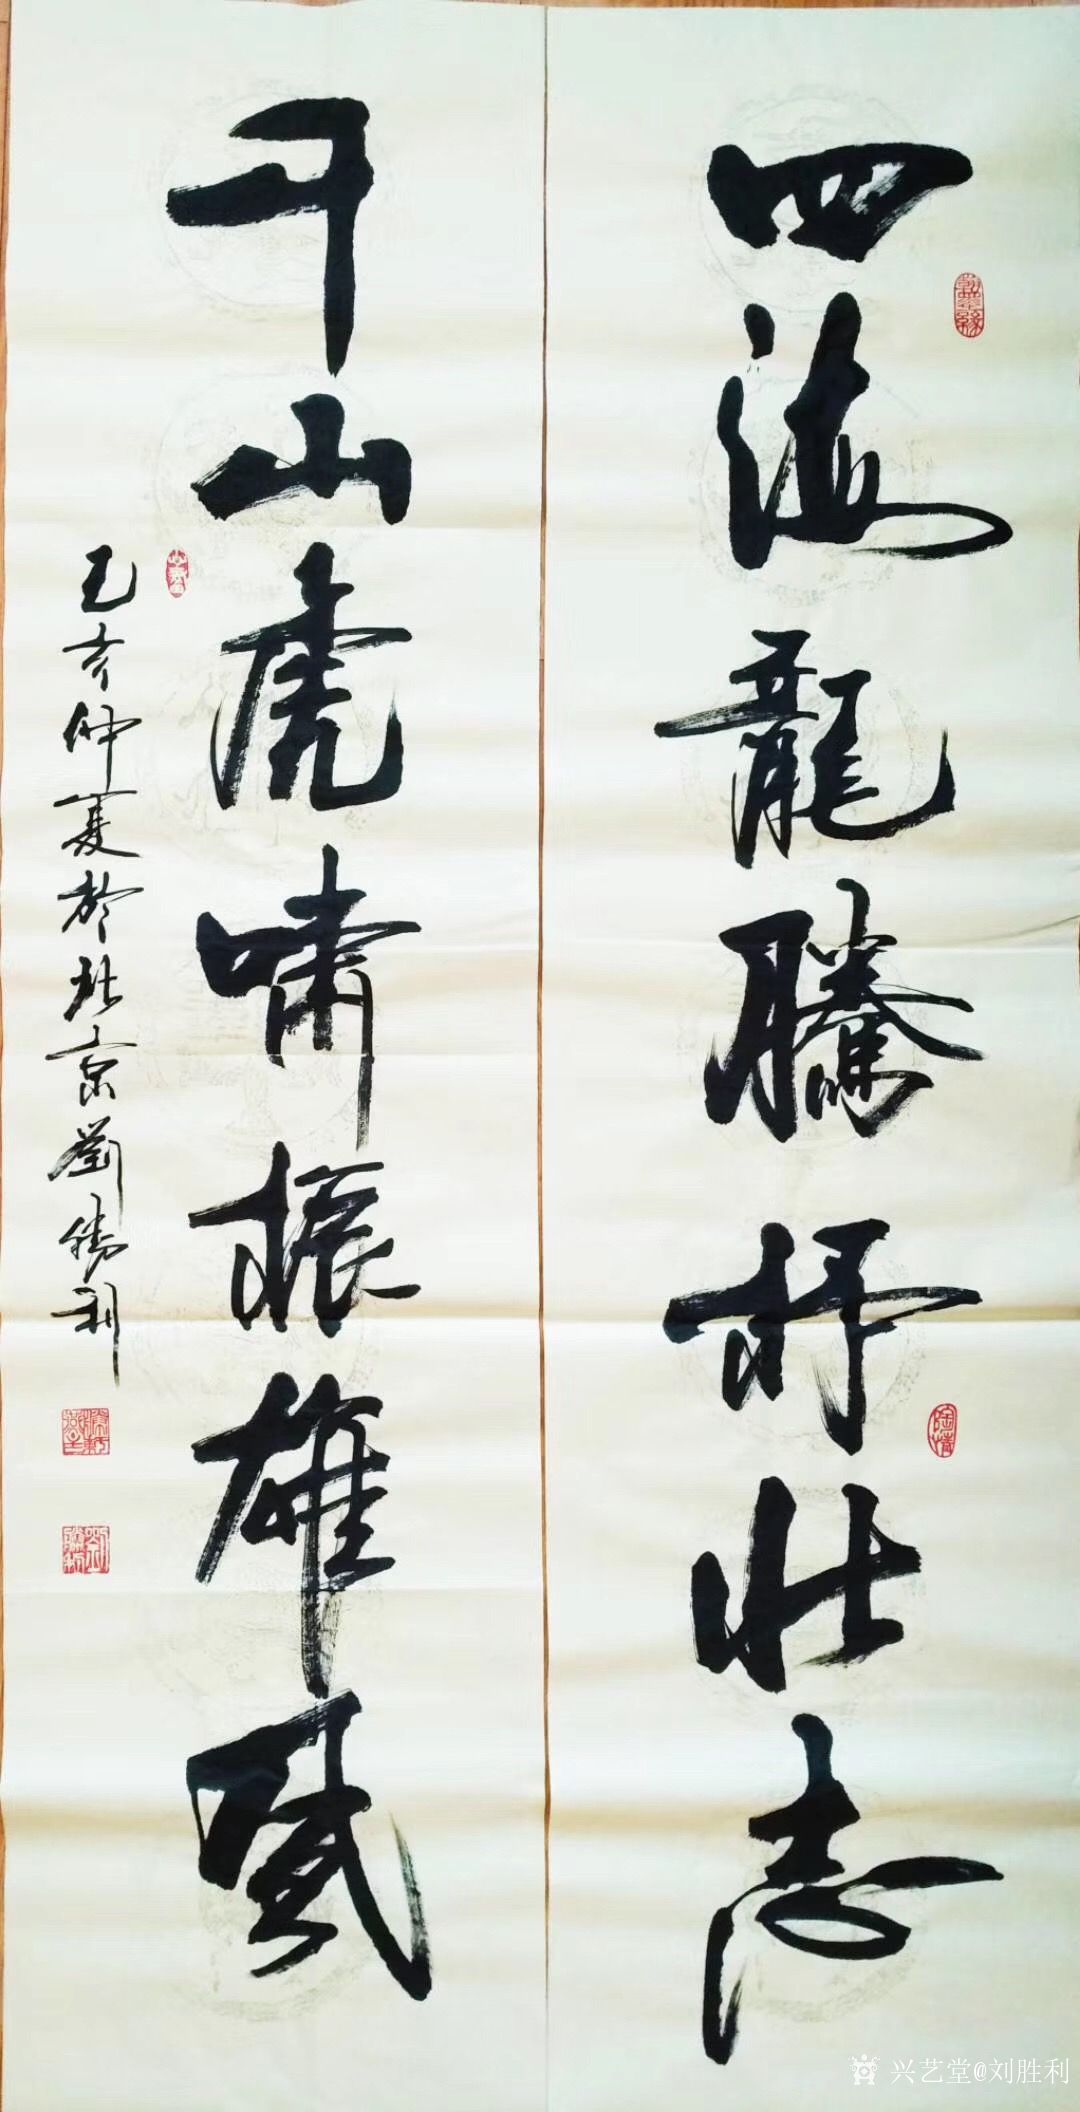 四海龍騰抒壮志
千山虎啸振雄風
己亥仲夏於北京劉勝利
陶情
兴艺堂@刘胜利